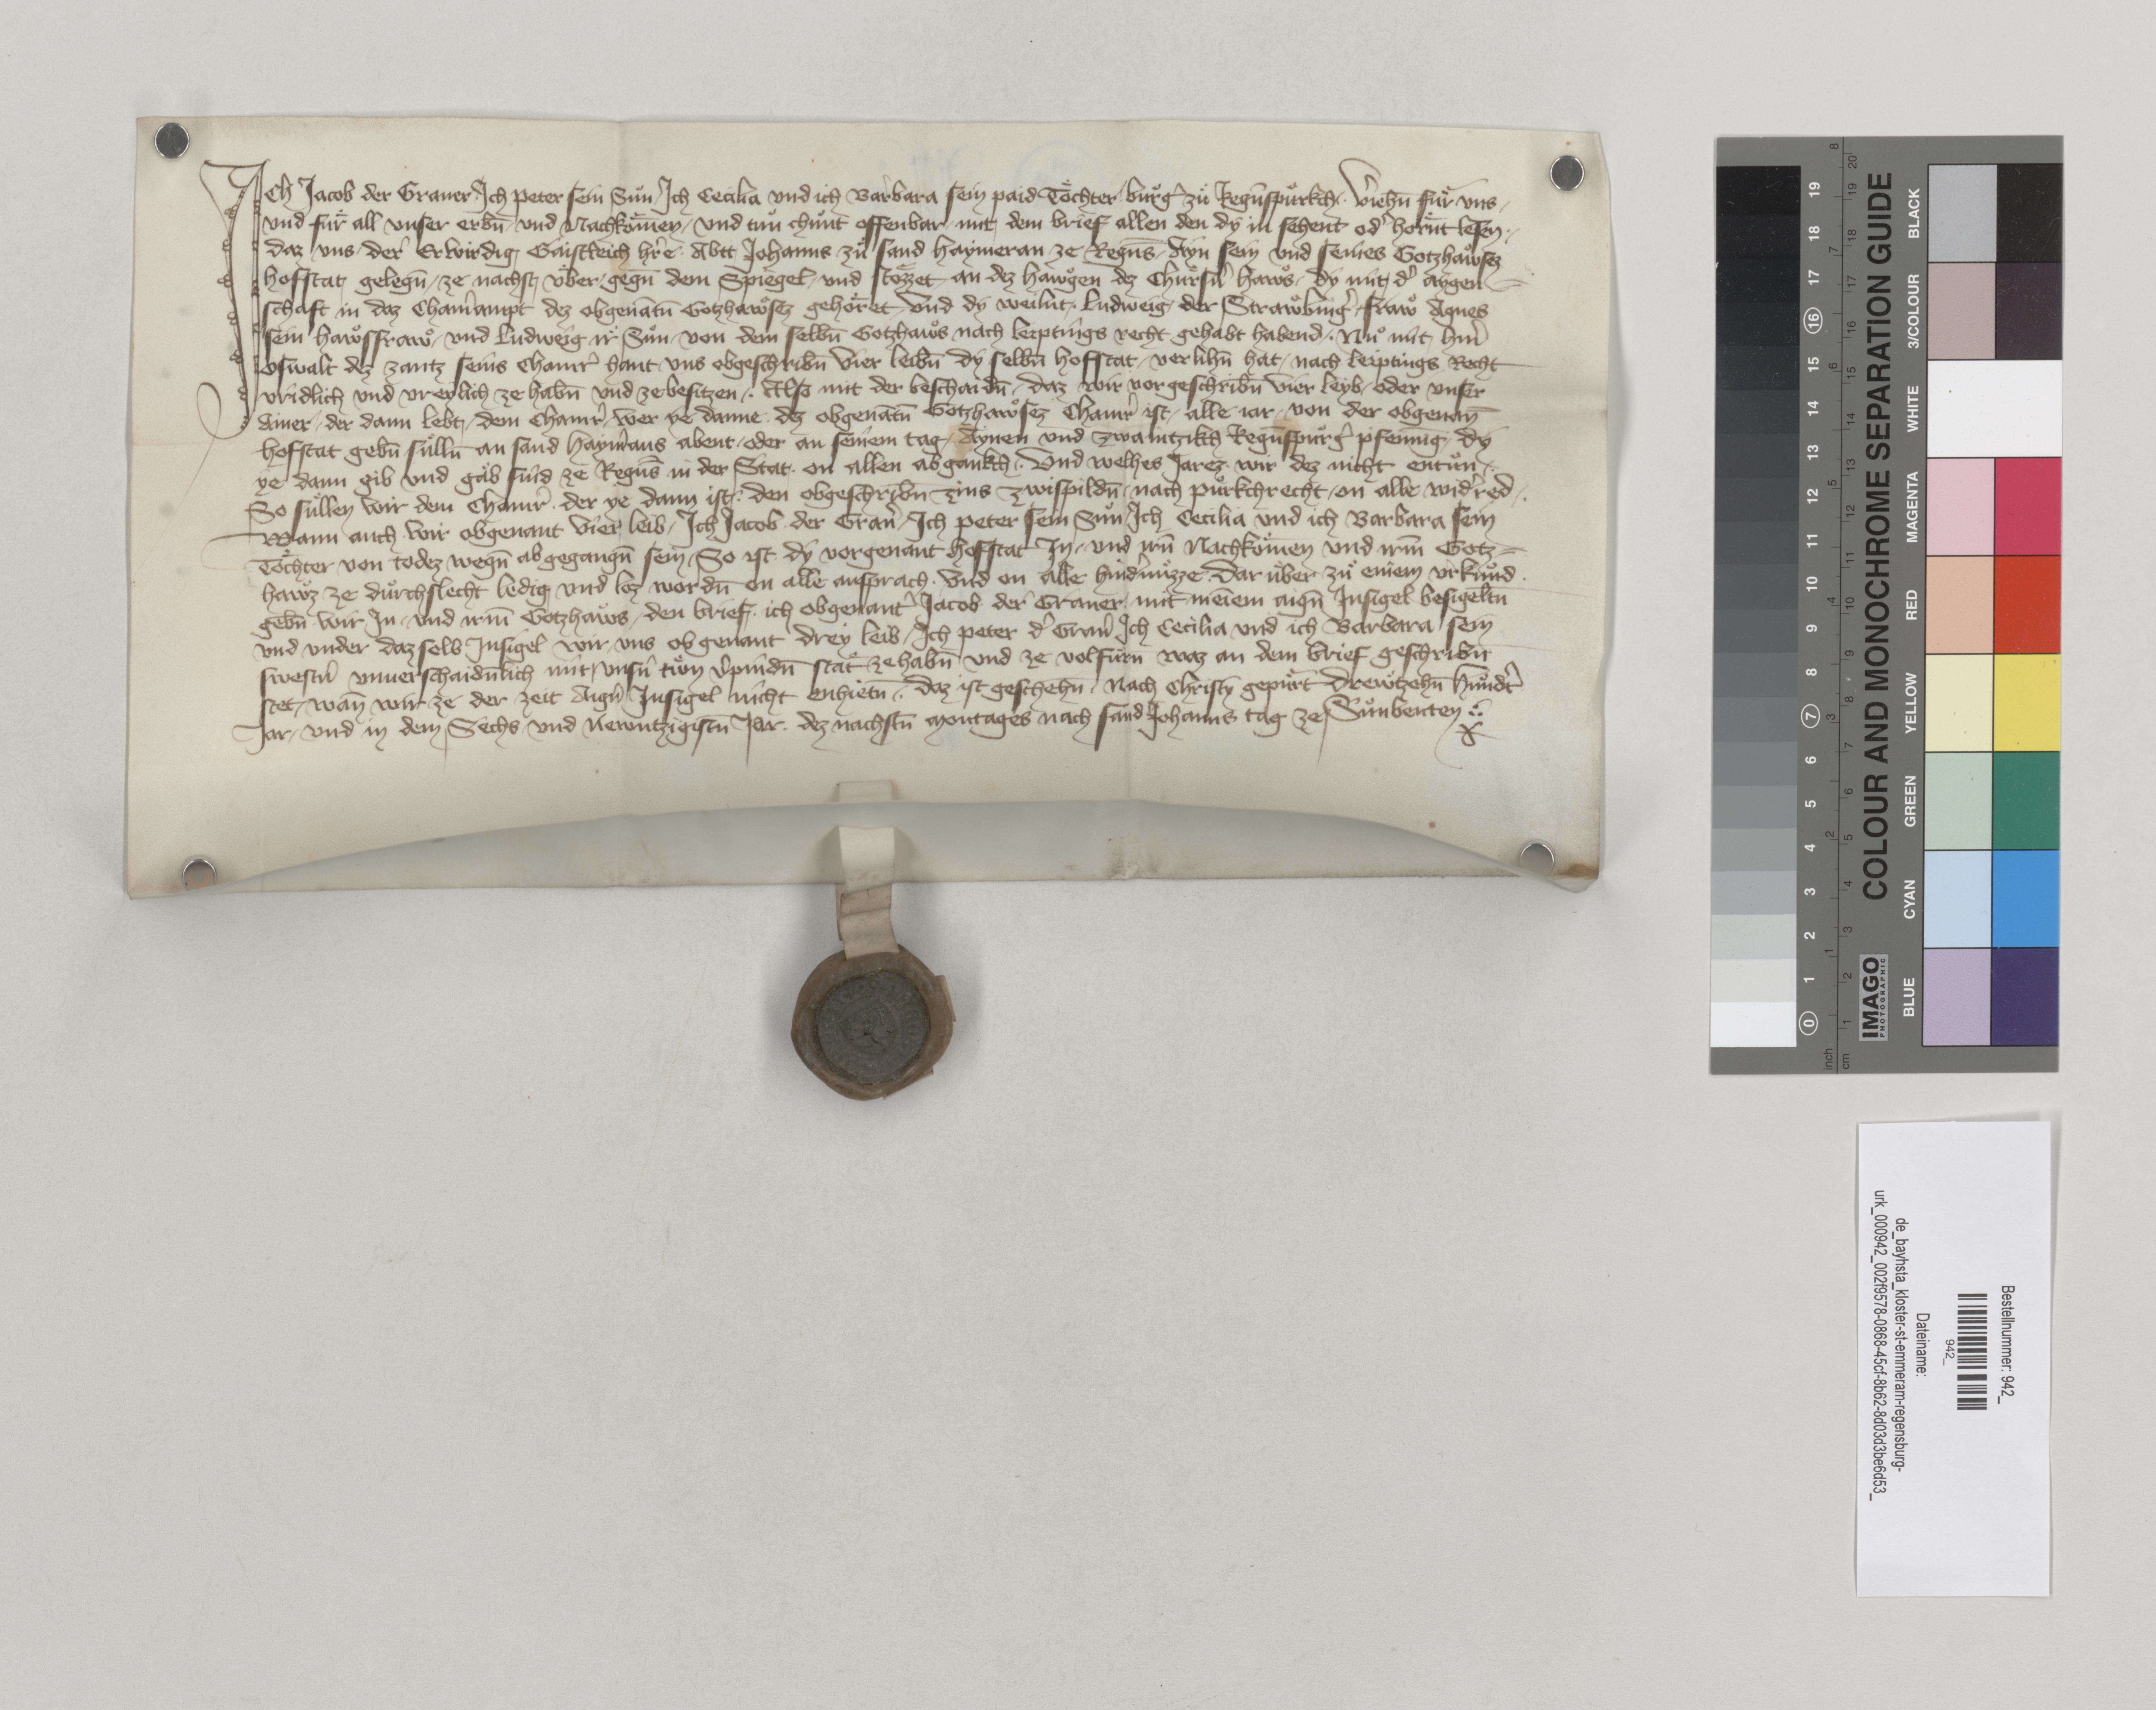 Ich Jacob der Graner Ich Peter sein Sůn Ich Cecilia und ich Barbara sein paid Tochter burg̉ zů Regn̄spůrkch v̉iehn̄ fůr vns
und für all unser erbn̄ und Nachkom̄en und tun chunt offenbar mit dem brief allen den dy in sehent od̉ hornt lesen
daz vns der Erwirdig Gaistleich hr̄e Abtt Johanns zů sand Haymeran ze Regns̄ Ayn sein und seines Gotzhawsez
hofstat gelegn̄ ze nachst vber gegn̄ dem Spiegel und stozzet an dez hawgen dez Chürsn̉ haws dy mit d̉ aygen
schaft in daz Cham̉ampt dez obgenātn̄ Gotzhawsez gehoret Und dy weilnt Ludweig der Strawbing̉ fraw Agnes
sein hawsfraw und Ludweig ir Sůn von dem selbn̄ Gotzhaws nach leiptings recht gehabt habend Nů mit hn̉
Oswalt dez zantz seins Cham̉ hant vns obgeschribn̄ Vier leibn̄ dy selbn̄ hofstat verlihn̄ hat nach leiptings Recht
vridlich und vreylich ze habn̄ und ze besitzen Also mit der beschaidn̄ daz wir vorgeschribn̄ vier leyb oder unser
ainer der dann lebt dem Cham̉ wer ye danne dez obgenātn̄ Gotzhawsez Cham̉ ist alle iar von der obgenan̄
hofstat gebn̄ sülln̄ an sand Haym̉ans abent oder an seinem tag Aynen und zwaintzikch Regn̄spůrg̉ pfennig dy
ye dann gib und gäb sind ze Regns̄ in der Stat on allen abgankch Und welhes Jarez wir dez nicht entůn
So süllen wir dem Cham̉ der ye dann ist den obgeschribn̄ zins zwispildn̄ nach pürkchrecht on alle wid̉red
Wann auch wir obgenant vier leib Ich Jacob der Gran̉ Ich Peter sein Sůn Ich Cecilia und ich Barbara sein
Tochter von todez wegn̄ abgegangn̄ sein So ist dy vorgenant hofstat In und irn̄ Nachkom̄en und irm̄ Gotz=
hawz ze důrchslecht ledig und loz wordn̄ on alle ansprach und on alle hind̉nüzze Dar über zů einem vrkůnd
gebn̄ wir In und irm̄ Gotzhaws den brief ich obgenant Jacob der Graner mit meiem aign̄ Insigel besigeltn̄
und under daz selb Insigel wir vns obgenant drey leib Ich Peter d̉ Gran̉ Ich Cecilia und ich Barbara sein
swestn̉ unuerschaidnlich mit unsn̉ trwn v̉pindn̄ stät ze habn̄ und ze volfürn waz an dem brief geschribn̄
stet wan̄ wir ze der zeit Aign̉ Insigel nicht enhietn̄ Daz ist geschehn̄ Nach Christi gepürt Drewtzehn̄ Hůnd̉t
Jar und in dem Sechs und Newntzigistn̄ Jar dez nachstn̄ Montages nach sand Johanns tag ze Sůnbenten
COLOUR AND MONOCHROME SEPARATION GUIDE
IMAGO
PHOTOGRAPHIC
BLUE CYAN GREEN YELLOW RED MAGENTA WHITE 3/COLOUR BLACK
0 1 2 3 4 5 6 7 8 9 10 11 12 13 14 15 16 17 18 19
inch 1 2 3 4 5 6 7 8
cm 1 2 3 4 5 6 7 8 9 10 11 12 13 14 15 16 17 18 19 20
Bestellnummer: 942_
942_
Dateiname:
de_bayhsta_kloster-st-emmeram-regensburg-
urk_000942_002f9578-0868-45cf-8b62-8d03d3be6d53_